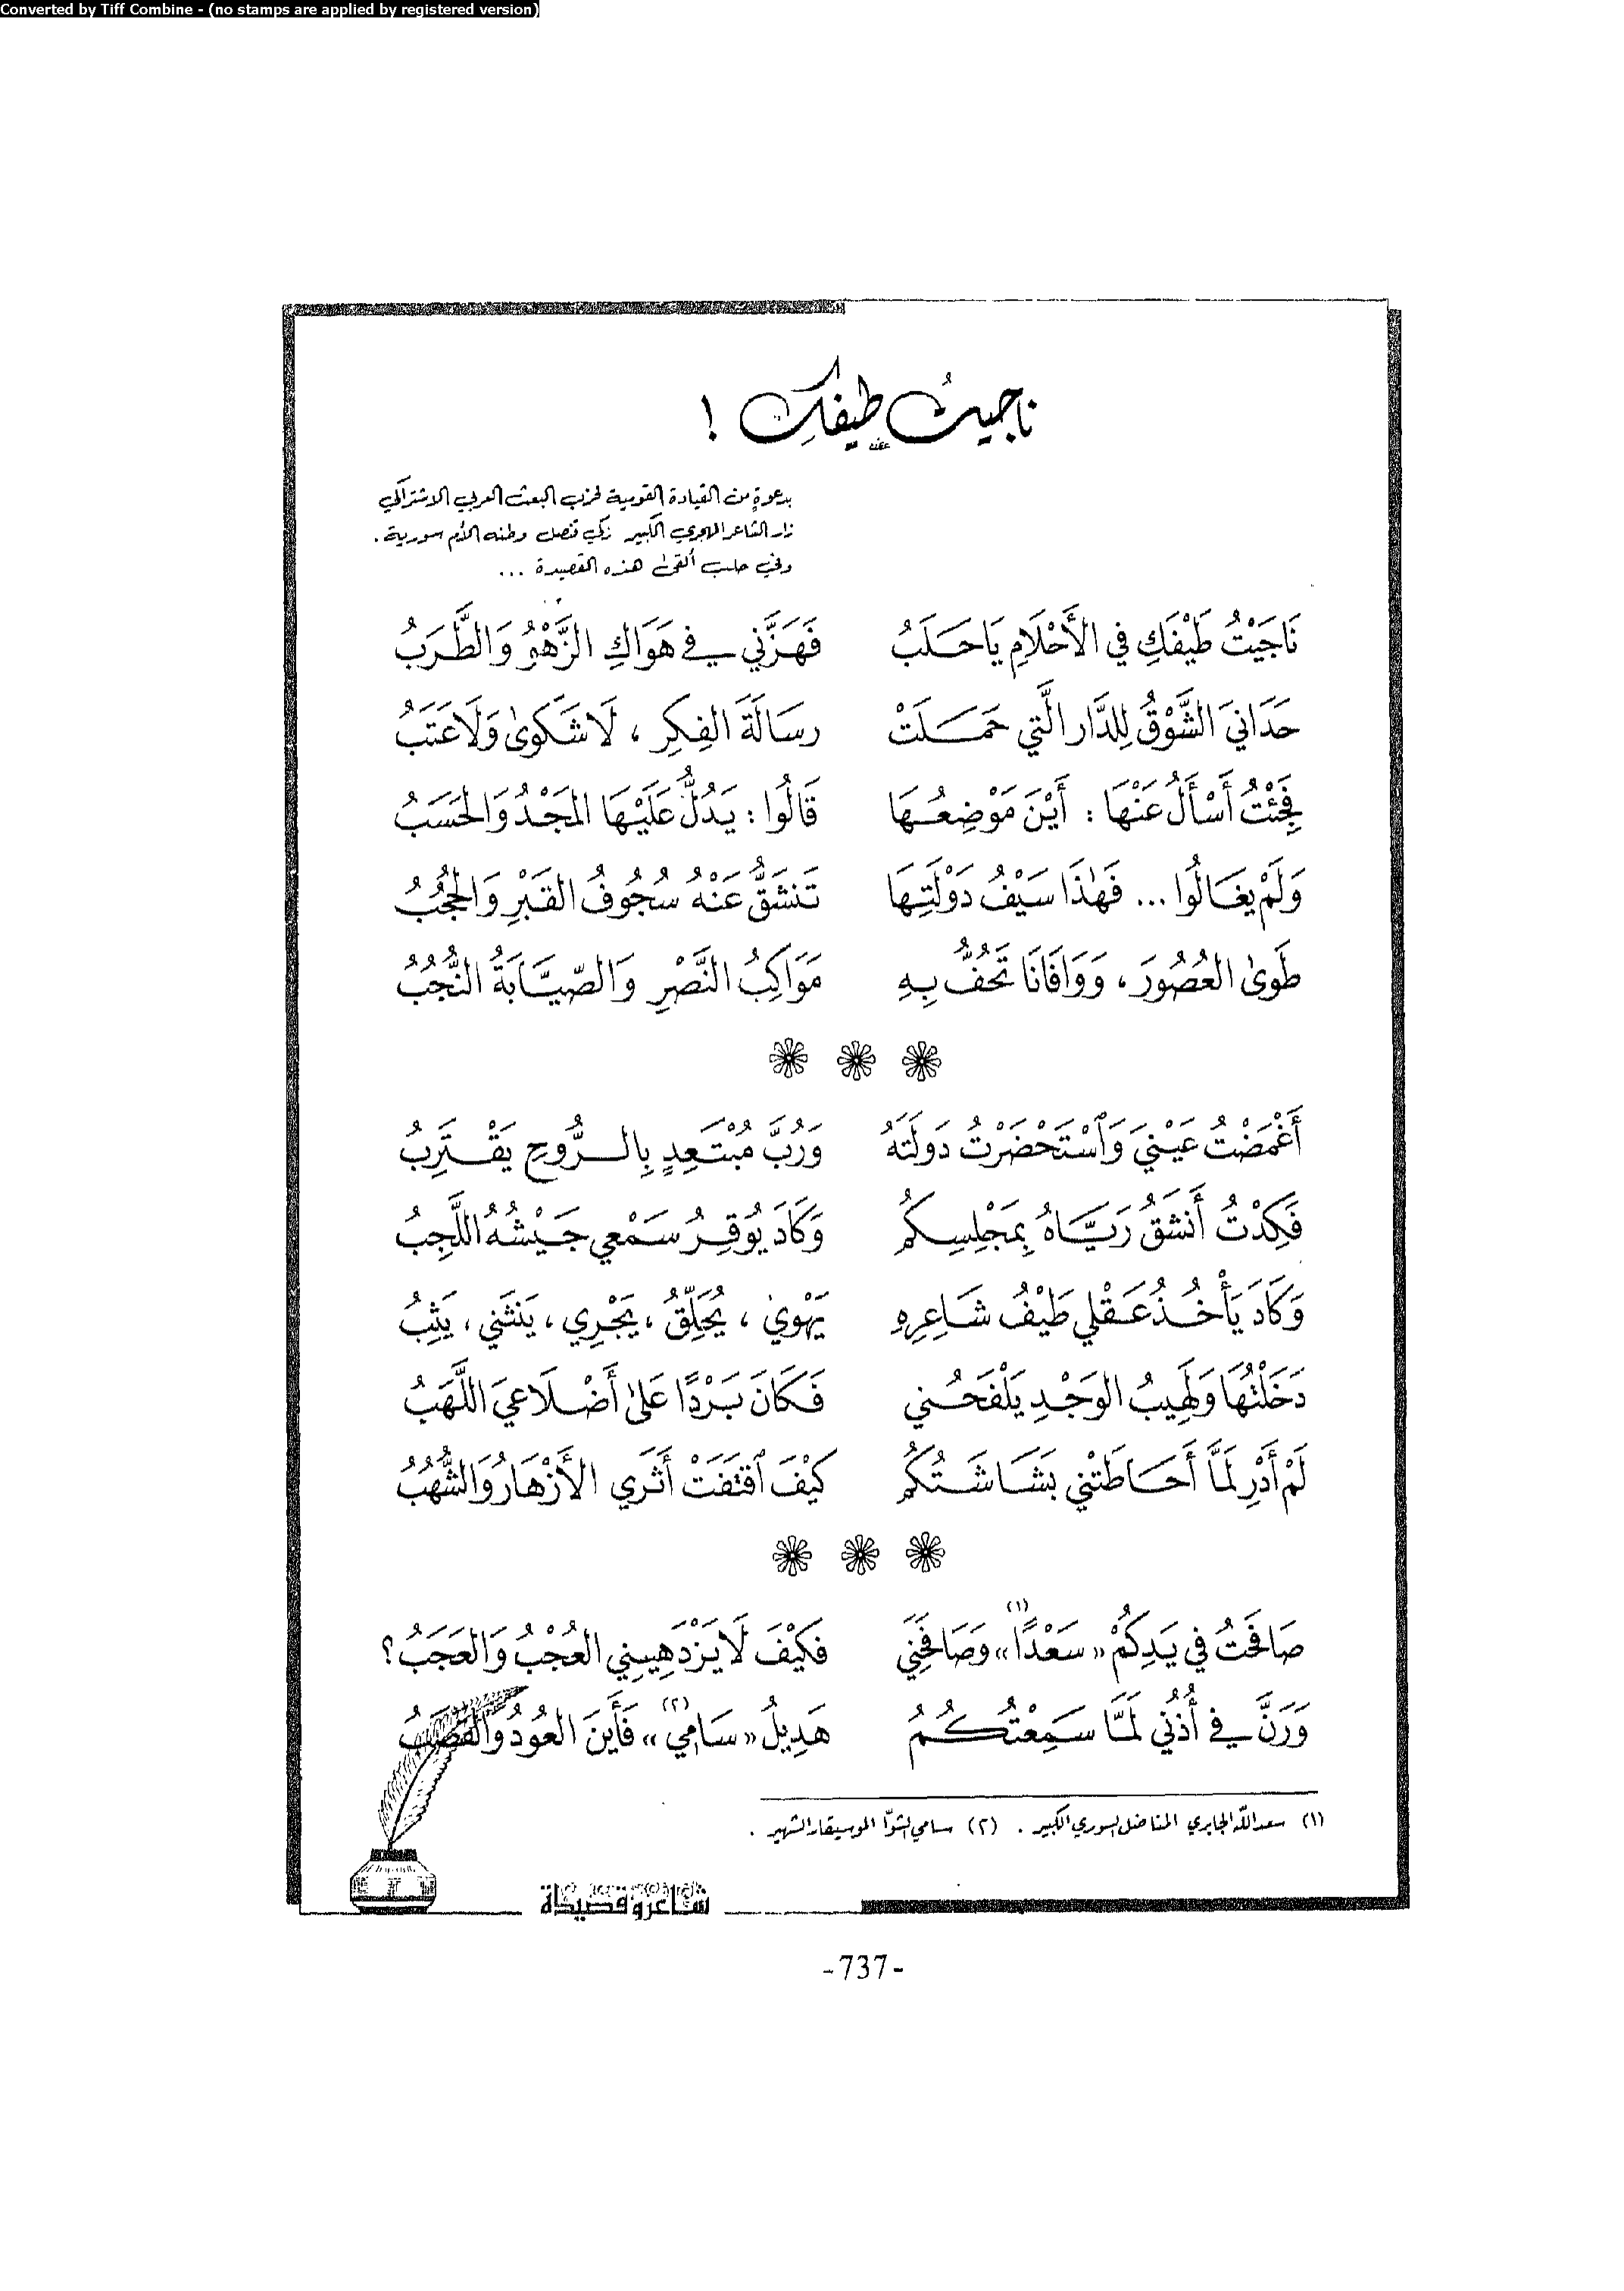 Converted by Tiff Combine - (no stamps are applied by registered version)
ناجيتُ طيفكِ !
بدعوةٍ من القيادة القومية لحزب البعث العربي الاشتراكي
زار الشاعر المهجري الكبير زكي قنصل وطنه الأم سورية .
وفي حلب ألقى هذه القصيدة ...
نَاجَيْتُ طَيْفَكِ فِي الأَحْلَامِ يَا حَلَبُ فَهَزَّنِي فِي هَوَاكِ الزَّهْوُ وَالطَّرَبُ
حَدَانِيَ الشَّوْقُ لِلدَّارِ الَّتِي حَمَلَتْ رِسَالَةَ الفِكِرِ ، لَا شَكْوَىٰ وَلَا عَتَبُ
فَجِئْتُ أَسْأَلُ عَنْهَا : أَيْنَ مَوْضِعُهَا قَالُوا : يَدُلُّ عَلَيْهَا المَجْدُ وَالحَسَبُ
وَلَمْ يُغَالُوا ... فَهٰذَا سَيْفُ دَوْلَتِهَا تَنشَقُّ عَنْهُ سُجُوفُ القَبْرِ وَالحُجُبُ
طَوىٰ العُصُورَ ، وَوَافَانَا تَحُفُّ بِهِ مَوَاكِبُ النَّصْرِ وَالصِّيَّابَةُ النُّجُبُ
أَغْمَضْتُ عَيْنِيَ وَٱسْتَحْضَرْتُ دَولَتَهُ وَرُبَّ مُبْتَعِدٍ بِالرُّوحِ يَقْتَرِبُ
فَكِدْتُ أَنشَقُ رَيَّاهُ بِمَجْلِسِكُم وَكَادَ يُوقِرُ سَمْعِي جَيْشُهُ اللَّجِبُ
وَكَادَ يَأْخُذُ عَقْلِي طَيْفُ شَاعِرِهِ يَهْوِيْ ، يُحَلِّقُ ، يَجْرِي ، يَنثَنِي ، يَثِبُ
دَخَلْتُهَا وَلَهِيبُ الوَجْدِ يَلْفَحُنِي فَكَانَ بَرْدًا عَلىٰ أَضْلَاعِيَ اللَّهَبُ
لَمْ أَدْرِ لَمَّا أَحَاطَتْنِي بَشَاشَتُكُم كَيْفَ ٱقتَفَتْ أَثَرِي الأَزْهَارُ وَالشُّهُبُ
صَافَحْتُ فِي يَدِكُمْ «سَعْدًا» (١) وَصَافَحَنِي فَكَيْفَ لَا يَزْدَهِينِي العُجْبُ وَالعَجَبُ؟
وَرَنَّ فِي أُذُنِي لَمَّا سَمِعْتُكُمُ هَدِيلُ «سَامِي» (٢) فَأَينَ العُودُ وَالقَصَبُ
(١) سعد الله الجابري المناضل السوري الكبير . (٢) سامي الشوّا الموسيقار الشهير .
شاعر وقصيدة
-737-